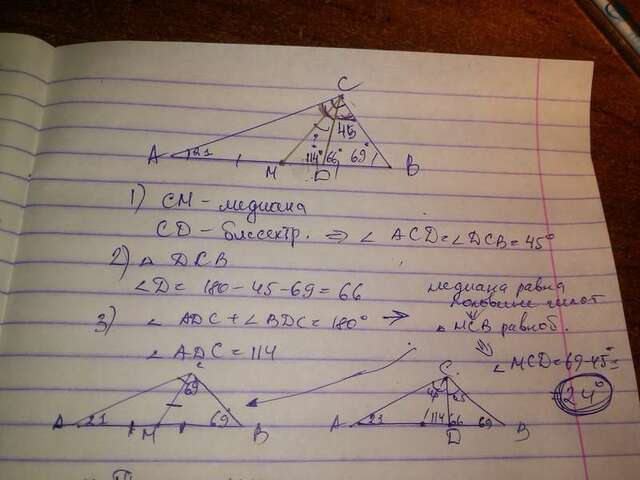 C
?
45
A 21 M 114° 66° D 69° B
1) CM – медиана
CD – биссектр. ⇒ ∠ ACD = ∠DCB = 45°
2) △ DCB
∠D = 180 – 45 – 69 = 66
медиана равна
половине гипот
3) ∠ ADC + ∠ BDC = 180° →
△ MCB равноб.
∠ ADC = 114
∠ MCD = 69-45=
24°
C
69
A 21 M 69 B
C
45 45
A 21 114 66 D 69 B